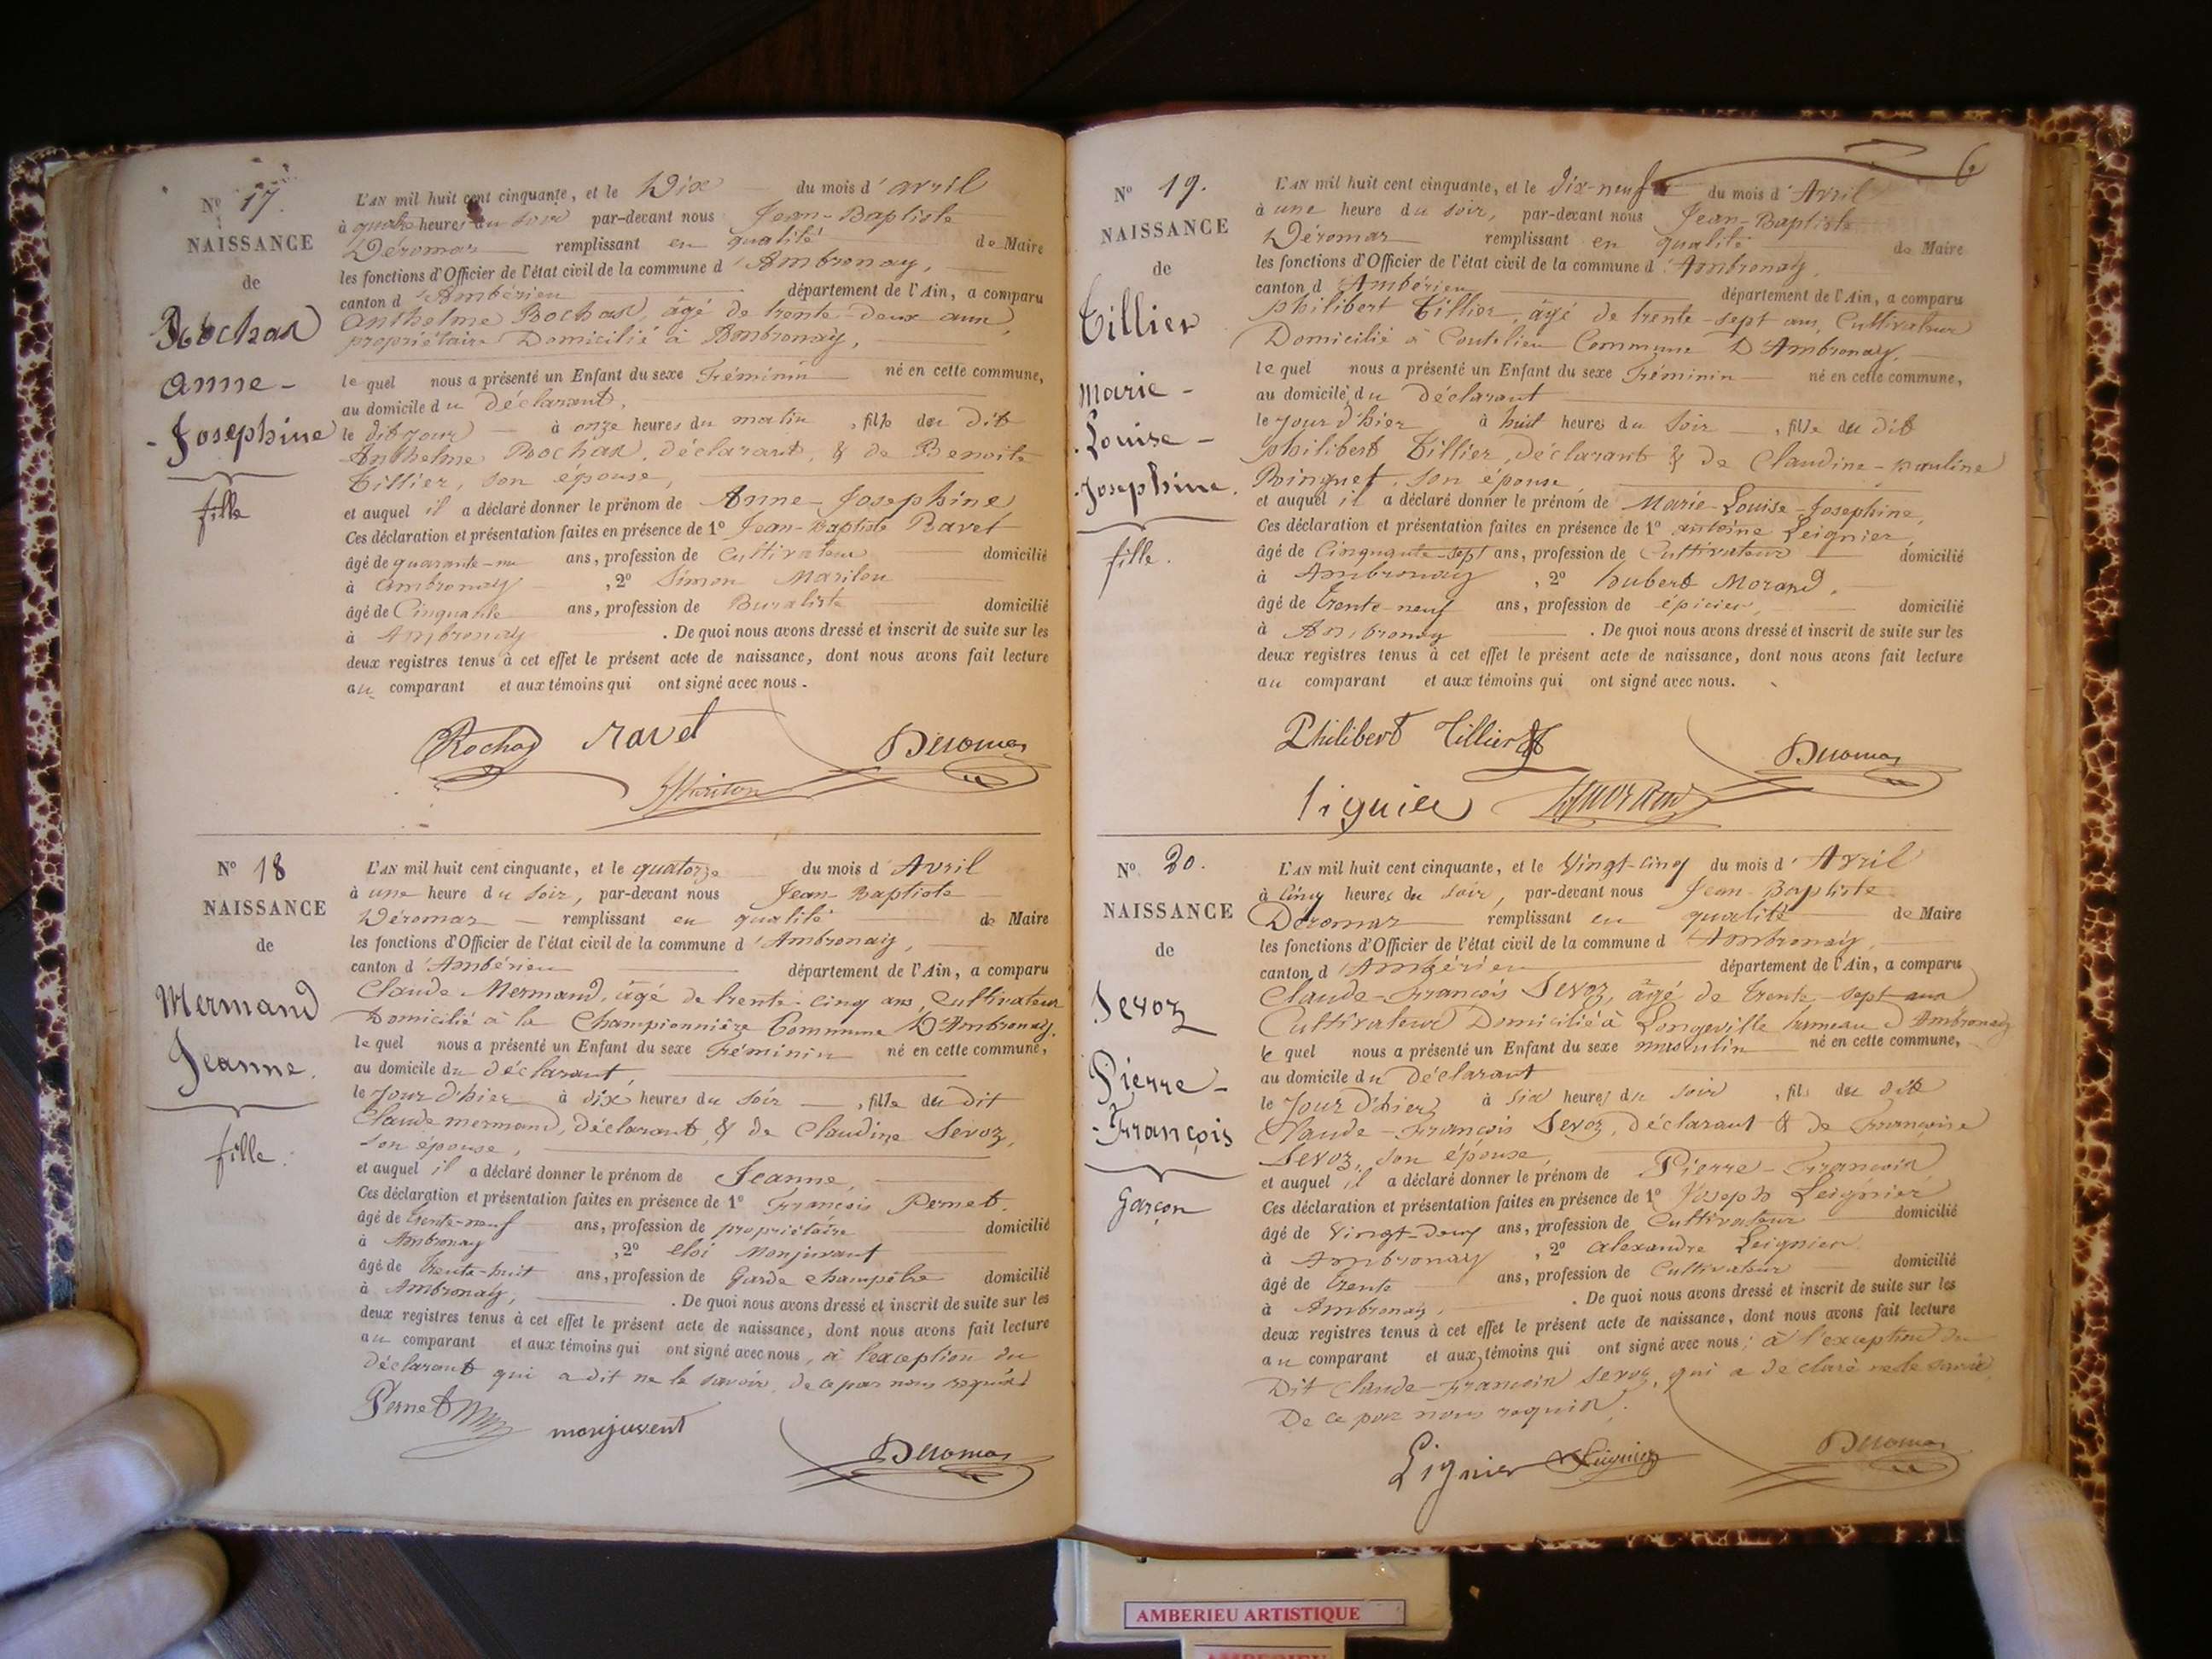 Nº 17.
NAISSANCE
de
Rochas
anne-
-Josephine
fille
L'AN mil huit cent cinquante, et le Dix du mois d'avril
à quatre heures du soir par-devant nous Jean-Baptiste
Déromas remplissant en qualité de Maire
les fonctions d'Officier de l'état civil de la commune d'Ambronay,
canton d'Ambérieu département de l'Ain, a comparu
Anthelme Rochas, âgé de trente-deux ans,
propriétaire Domicilié à Ambronay,
lequel nous a présenté un Enfant du sexe Féminin né en cette commune,
au domicile du Déclarant,
le dit jour à onze heures du matin, fille du dit
Anthelme Rochas, déclarant, & de Benoite
Tillier, son épouse,
et auquel il a déclaré donner le prénom de Anne-Josephine,
Ces déclaration et présentation faites en présence de 1º Jean-Baptiste Ravet
âgé de quarante-un ans, profession de Cultivateur domicilié
à Ambronay, 2º Simon
âgé de Cinquante ans, profession de Buraliste domicilié
à Ambronay. De quoi nous avons dressé et inscrit de suite sur les
deux registres tenus à cet effet le présent acte de naissance, dont nous avons fait lecture
au comparant et aux témoins qui ont signé avec nous.
Rochas ravet Deromas
Nº 18
NAISSANCE
de
Mermand
Jeanne.
fille.
L'AN mil huit cent cinquante, et le quatorze du mois d'Avril
à une heure du soir, par-devant nous Jean-Baptiste
Déromas remplissant en qualité de Maire
les fonctions d'Officier de l'état civil de la commune d'Ambronay,
canton d'Ambérieu département de l'Ain, a comparu
Claude Mermand, âgé de trente-cinq ans, Cultivateur
Domicilié à la Championnière Commune D'Ambronay.
lequel nous a présenté un Enfant du sexe Féminin né en cette commune,
au domicile du déclarant,
le Jour d'hier à dix heures du soir, fille du dit
Claude mermand, déclarant, & de Claudine Sevoz,
son épouse,
et auquel il a déclaré donner le prénom de Jeanne,
Ces déclaration et présentation faites en présence de 1º François Pernet.
âgé de trente-neuf ans, profession de propriétaire domicilié
à Ambronay, 2º eloi Monjuvant
âgé de trente-huit ans, profession de Garde champêtre domicilié
à Ambronay, . De quoi nous avons dressé et inscrit de suite sur les
deux registres tenus à cet effet le présent acte de naissance, dont nous avons fait lecture
au comparant et aux témoins qui ont signé avec nous, à l'exception du
déclarant qui a dit ne le savoir, de ce par nous requis
Pernet monjuvent
Deromas
6
Nº 19.
NAISSANCE
de
Tillier
Marie-
Louise-
Josephine.
fille.
L'AN mil huit cent cinquante, et le dix-neuf du mois d'Avril
à une heure du soir, par-devant nous Jean-Baptiste
Déromas remplissant en qualité de Maire
les fonctions d'Officier de l'état civil de la commune d'Ambronay,
canton d'Ambérieu département de l'Ain, a comparu
philibert Tillier, âgé de trente-sept ans, Cultivateur
Domicilié à Coutelieu Commune D'Ambronay.
lequel nous a présenté un Enfant du sexe Féminin né en cette commune,
au domicile du Déclarant
le jour d'hier à huit heures du soir, fille du dit
philibert Tillier, déclarant & de Claudine-pauline
son épouse
et auquel il a déclaré donner le prénom de Marie-Louise-Josephine,
Ces déclaration et présentation faites en présence de 1º antoine Leignier,
âgé de Cinquante-sept ans, profession de Cultivateur domicilié
à Ambronay, 2º hubert Morand,
âgé de trente-neuf ans, profession de épicier, domicilié
à Ambronay. De quoi nous avons dressé et inscrit de suite sur les
deux registres tenus à cet effet le présent acte de naissance, dont nous avons fait lecture
au comparant et aux témoins qui ont signé avec nous.
Philibert Tillier Deromas
liguier
Nº 20.
NAISSANCE
de
Sevoz
Pierre-
-François
Garçon
L'AN mil huit cent cinquante, et le Vingt-cinq du mois d'Avril
à cinq heures du soir, par-devant nous Jean-Baptiste
Déromas remplissant en qualité de Maire
les fonctions d'Officier de l'état civil de la commune d'Ambronay,
canton d'Ambérieu département de l'Ain, a comparu
Claude-François Sevoz, âgé de trente-sept ans
Cultivateur Domicilié à Longeville hameau d'Ambronay
lequel nous a présenté un Enfant du sexe masculin né en cette commune,
au domicile du Déclarant
le Jour d'hier à six heures du soir, fils du dit
Claude-François Sevoz, déclarant & de Françoise
Sevoz, son épouse,
et auquel il a déclaré donner le prénom de Pierre-François
Ces déclaration et présentation faites en présence de 1º Joseph Leignier
âgé de Vingt-deux ans, profession de Cultivateur domicilié
à Ambronay, 2º alexandre Leignier
âgé de trente ans, profession de Cultivateur domicilié
à Ambronay, . De quoi nous avons dressé et inscrit de suite sur les
deux registres tenus à cet effet le présent acte de naissance, dont nous avons fait lecture
au comparant et aux témoins qui ont signé avec nous; à l'exception du
Dit Claude-François Sevoz, qui a déclaré ne le savoir,
De ce par nous requis.
Lignier Deromas
AMBERIEU ARTISTIQUE
AMBERIEU